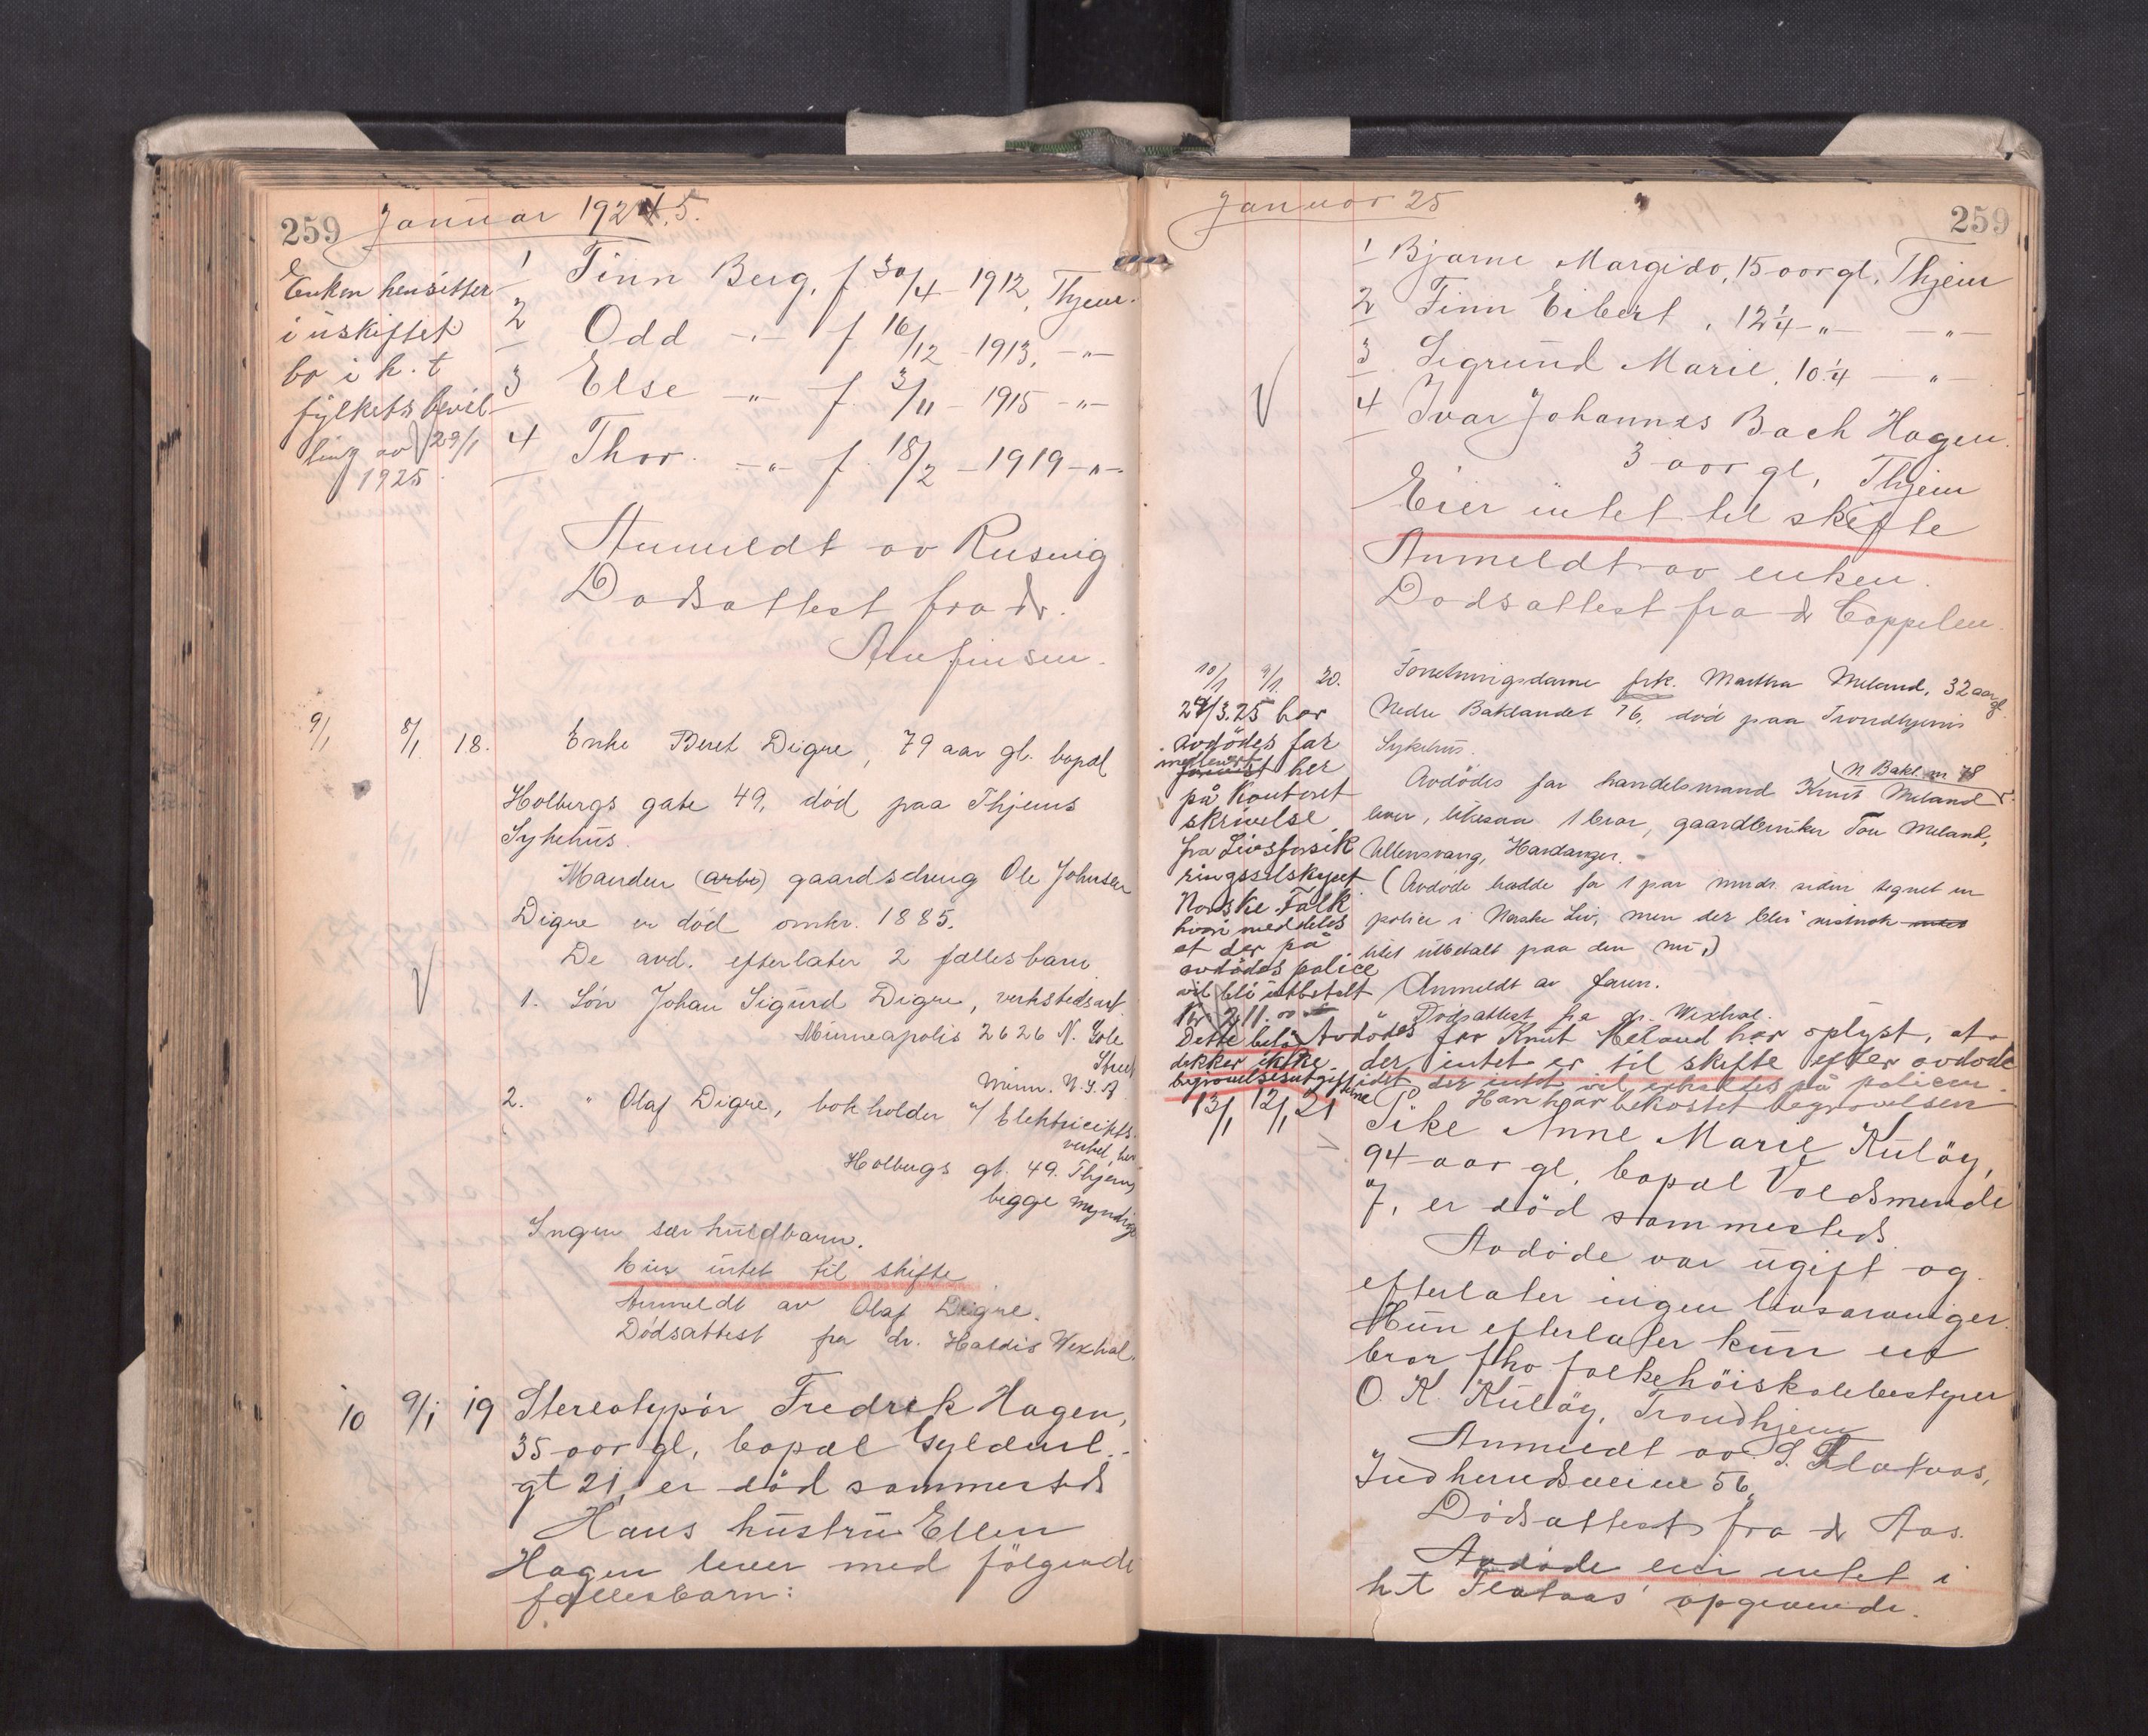 259 Januar 1924.5.
Enken hensitter
i uskiftet
bo i h. t
fylkets bevil-
ling av 29/1
1925.
1 Finn Berg, f. 30/4 - 1912, Thjem.
2 Odd -"- f 16/12 - 1913, -"-
3 Else -"- f. 3/11 - 1915 -"-
4 Thor. -"- f. 18/2 - 1919 -"-
Anmeldt av Rusvig
Dødsattest fra dr.
Arnfinsen.
9/1 8/1 18. Enke Beret Digre, 79 aar gl. bopæl
Holbergs gate 49, død paa Thjems
Sykehus.
Manden (arb) gaardsdreng Ole Johnsen
Digre er død omkr. 1885.
De avd. efterlater 2 fællesbarn
1. Søn Johan Sigurd Digre, verkstedsarb.
Minneapolis 2626 N.
Street
Minn. U.S.A
2. " Olaf Digre, bokholder v/ Elektricitets-
verket, her
Holbergs gt. 49. Thjem,
begge myndige
Ingen særkuldbarn.
Eier intet til skifte
Anmeldt av Olaf Digre.
Dødsattest fra dr. Haldis Wexhal.
10 9/1 19 Stereotypør Fredrik Hagen,
35 aar gl, bopæl Gyldenl.-
gt 21, er død sammesteds
Hans hustru Ellen
Hagen lever med følgende
fællesbarn:
Januar 25 259
1 Bjarne Margido, 15 aar gl, Thjem
2 Finn Eibert, 12 1/4 -"- -"-
3 Sigrund Marie, 10 1/4 - " -
4 Ivar Johannes Bach Hagen.
3 aar gl, Thjem
Eier intet til skifte
Anmeldt av enken.
Dødsattest fra dr Coppelen.
10/1 9/1. 20. Forretningsdame frk. Martha Meland, 32 aar gl.
Nedre Baklandet 76, død paa Trondhjems
Sykehus.
N Bakl. nr 78
Avdødes far handelsmand Knut Meland
lever, likesaa 1 bror, gaardbruker Tore Meland,
Ullensvang, Hardanger.
(Avdøde hadde for 1 par mndr. siden tegnet en
police i Norske Liv, men der blir vistnok
intet utbetalt paa den nu,)
Anmeldt av faren.
" Dødsattest fra dr. Wexhal.
Avdødes far Knut Meland har oplyst, at
der intet er til skifte efter avdøde
idet der intet vil erholdes på policen.
Han har bekostet begravelsen
24/3.25 har
avdødes far
medlevert her
på Kontoret
skrivelse
fra Livsforsik
ringsselskapet
Norske Folk
hvori meddeles
at der på
avdødes police
vil bli utbetalt
Kr. 211.00
Dette beløp
dekker ikke
begravelsesutgiftene
13/1 12/1 21 Pike Anne Marie Kuløy,
94 aar gl, bopæl Voldsminde
7, er død sammesteds.
Avdøde var ugift og
efterlater ingen livsarvinger.
Hun efterlater kun en
bror fhv folkehöiskolebestyrer
O. K. Kuløy, Trondhjem
Anmeldt av S. Flataas,
Indherredsveien 56.
Dødsattest fra dr Aas.
Avdøde eier intet i
h.t Flataas' opgivende.